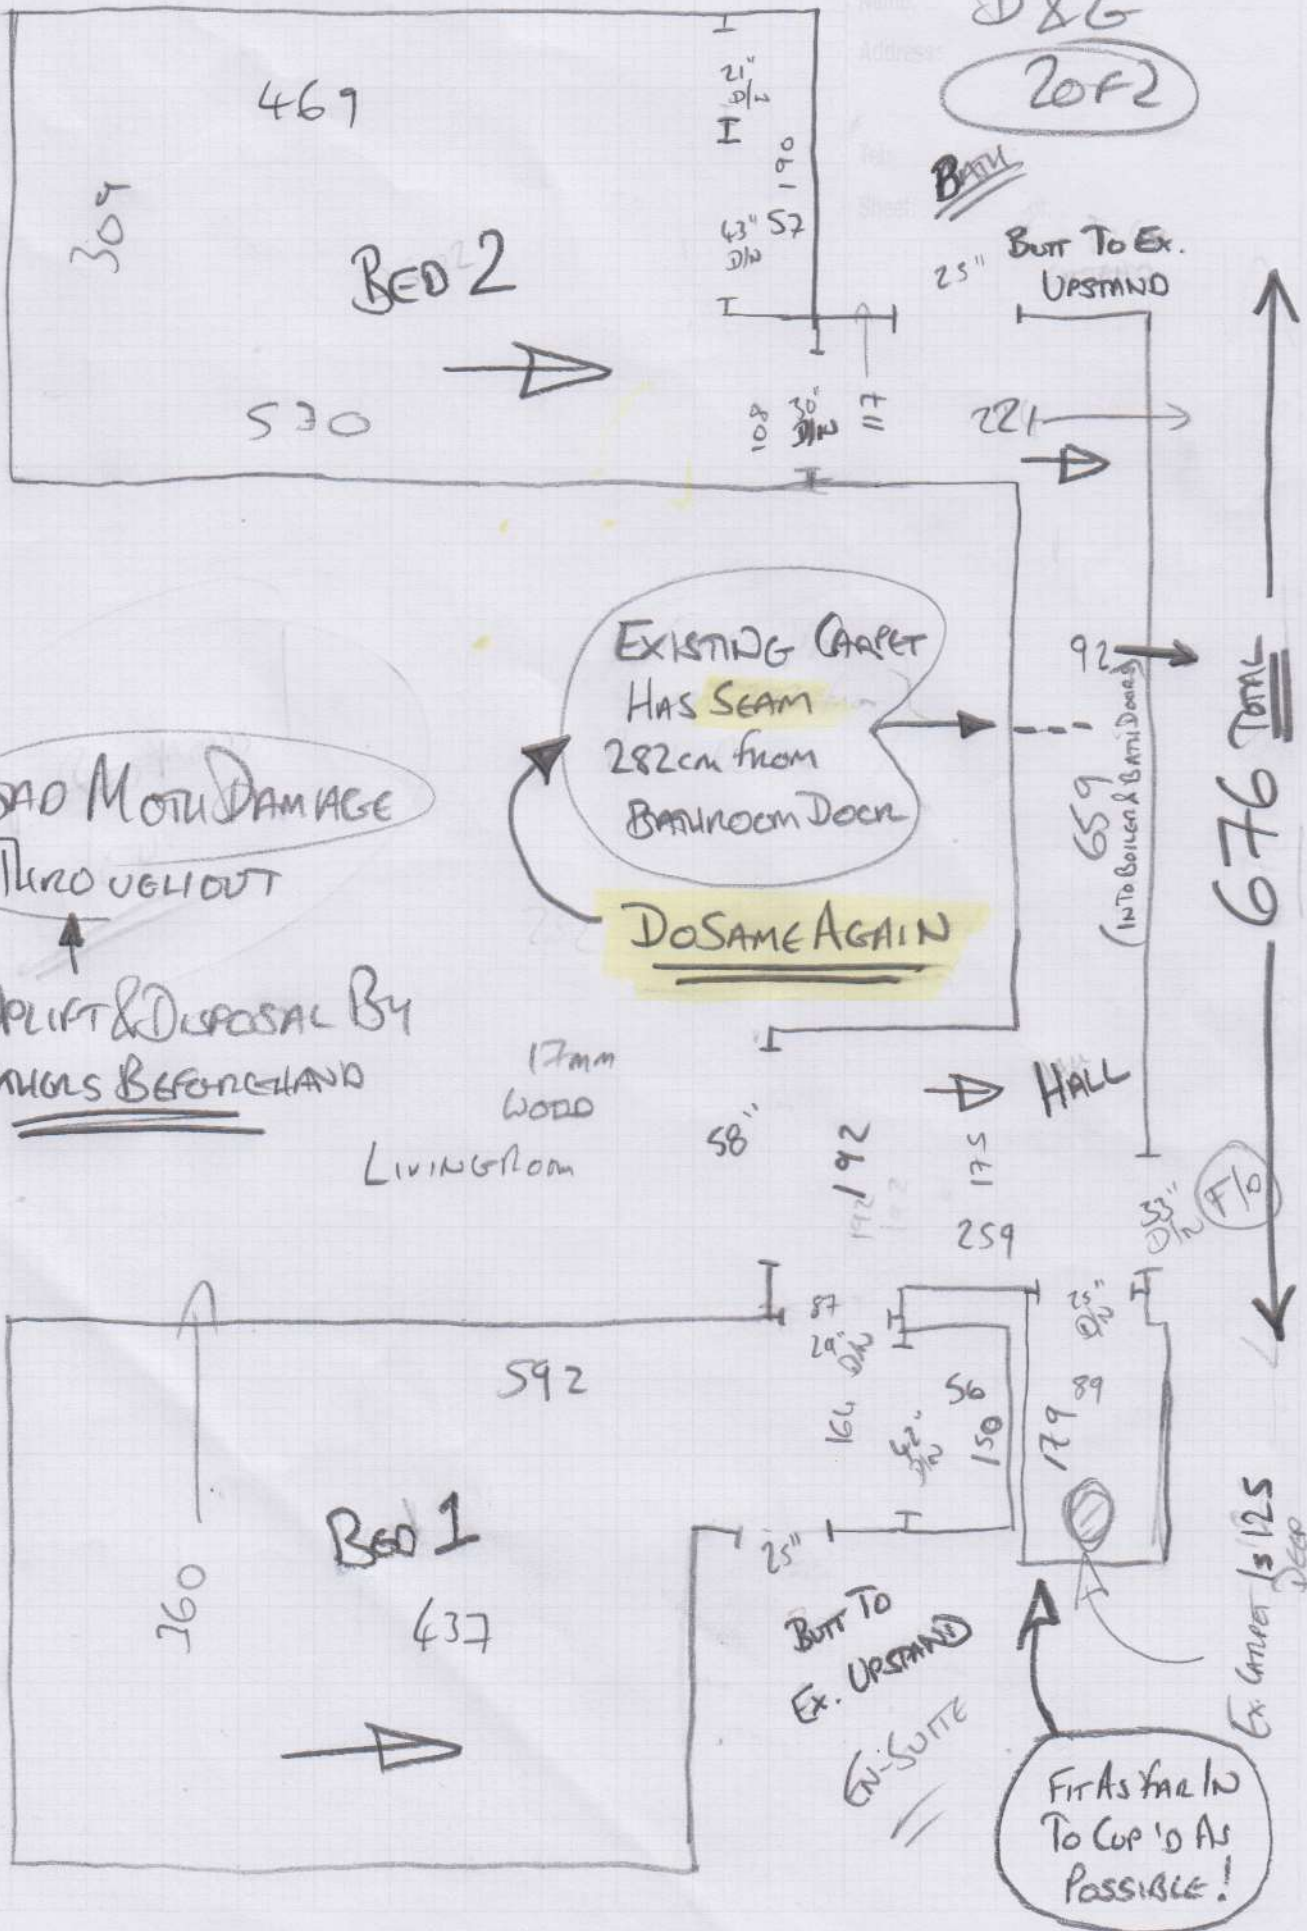 Name:
D & G
Address:
2 OF 2
Tel:
Sheet:
469
309
BED 2
530
21"
190
43"
D/N
57
BATH
25"
BUTT TO EX.
UPSTAND
108
30"
D/N
117
221
EXISTING CARPET
HAS SEAM
282cm FROM
BATHROOM DOOR
DO SAME AGAIN
92
659
(INTO BOILER & BATH DOORS)
676 TOTAL
BAD MOTH DAMAGE
THROUGHOUT
UPLIFT & DISPOSAL BY
OTHERS BEFOREHAND
17mm
WOOD
LIVINGROOM
58"
192
192
175
HALL
259
33"
D/N
F/O
87
29"
D/N
25"
D/N
592
164
42"
D/N
56
150
179
89
BED 1
360
437
25"
BUTT TO
EX. UPSTAND
EN-SUITE
EX. CARPET IS 125
DEEP
FIT AS FAR IN
TO CUP'D AS
POSSIBLE!